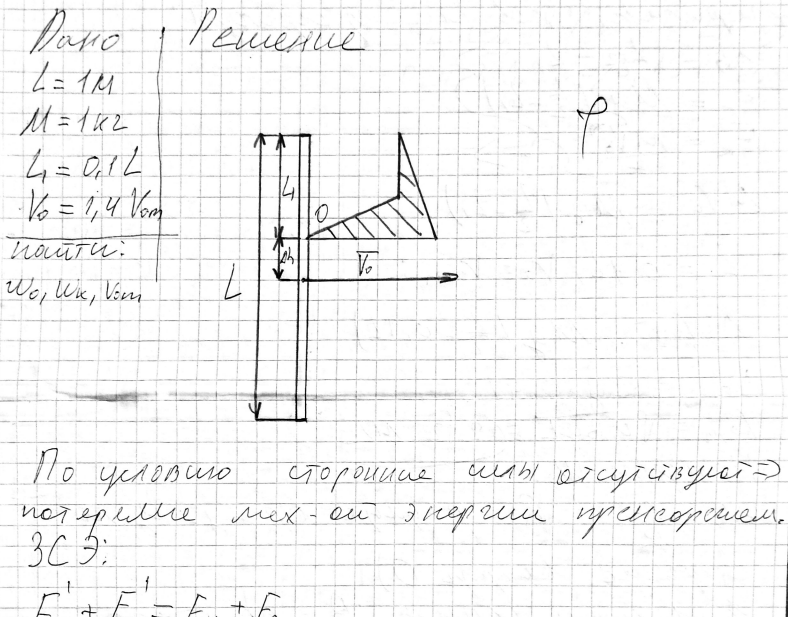 Дано Решение
L = 1м
M = 1кг
L₁ = 0,1L
V₀ = 1,4 V₀m
найти:
w₀, wк, V₀m
L₁
O
Δh
V̅₀
L
φ
По условию сторонние силы отсутствуют ⇒
потерями мех-ой энергии пренебрегаем.
ЗСЭ: